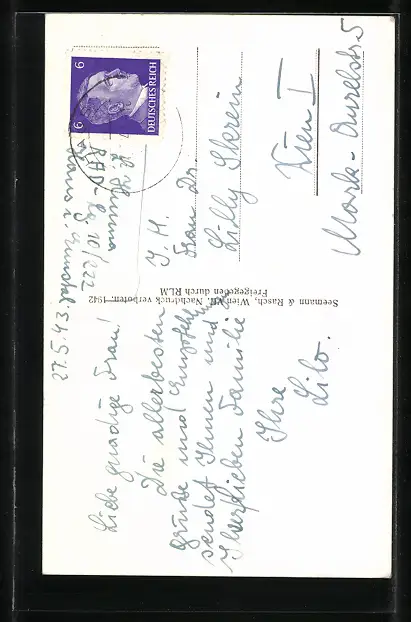 27.5.43.
Liebe gnädige Frau!
Die allerbesten
Grüße und Empfehlungen
sendet Ihnen und der
lieben Familie
Ihre
Lilo.
Seemann & Rasch, Wien VII. Nachdruck verboten. 1942
Freigegeben durch RLM
DEUTSCHES REICH
6
6
RAD-Lg. 10/222
I. H.
Frau Dr.
Lilly Skrein
Wien I
Mark-Aurelstr. 5